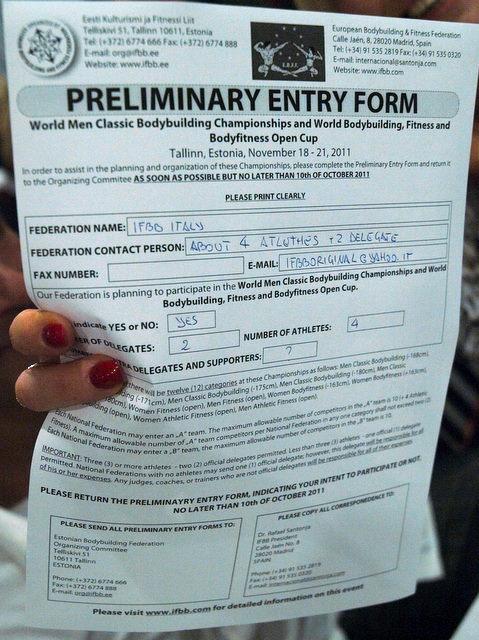 Eesti Kulturismi ja Fitnessi Liit
Telliskivi 51, Tallinn 10611, Estonia
Tel: (+372) 6774 666 Fax: (+372) 6774 888
E-mail: org@ifbb.ee
Website: www.ifbb.ee
European Bodybuilding & Fitness Federation
Calle Jaén, 8, 28020 Madrid, Spain
Tel: (+34) 91 535 2819 Fax: (+34) 91 535 0320
E-mail: internacional@santonja.com
Website: www.ifbb.com
PRELIMINARY ENTRY FORM
World Men Classic Bodybuilding Championships and World Bodybuilding, Fitness and
Bodyfitness Open Cup
Tallinn, Estonia, November 18 - 21, 2011
In order to assist in the planning and organization of these Championships, please complete the Preliminary Entry Form and return it
to the Organizing Commitee AS SOON AS POSSIBLE BUT NO LATER THAN 10th OF OCTOBER 2011
PLEASE PRINT CLEARLY
FEDERATION NAME: IFBB ITALY
FEDERATION CONTACT PERSON: ABOUT 4 ATLUTHES + 2 DELEGATE
FAX NUMBER: E-MAIL: IFBBORIGINAL@YAHOO.IT
Our Federation is planning to participate in the World Men Classic Bodybuilding Championships and World
Bodybuilding, Fitness and Bodyfitness Open Cup.
indicate YES or NO: YES
OF DELEGATES: 2 NUMBER OF ATHLETES: 4
DELEGATES AND SUPPORTERS: ?
there will be twelve (12) categories at these Championships as follows: Men Classic Bodybuilding (-168cm),
(-171cm), Men Classic Bodybuilding (-175cm), Men Classic Bodybuilding (-180cm), Men Classic
(+180cm), Women Fitness (open), Men Fitness (open), Women Bodyfitness (-163cm), Women Bodyfitness (+163cm),
(open), Women Athletic Fitness (open), Men Athletic Fitness (open).
Each National Federation may enter an „A" team. The maximum allowable number of competitors in the „A" team is 10 + 4 Athletic
Fitness). A maximum allowable number of „A" team competitors per National Federation in any one category shall not exceed two (2).
Each National Federation may enter a „B" team, the maximum allowable number of competitors in the „B" team is 10.
IMPORTANT: Three (3) or more athletes - two (2) official delegates permitted. Less than three (3) athletes - one official (1) delegate
permitted. National Federations with no athletes may send one (1) official delegate; however, this delegate will be responsible for all
of his or her expenses. Any judges, coaches, or trainers who are not official delegates will be responsible for all of their expenses.
PLEASE RETURN THE PRELIMINAYRY ENTRY FORM, INDICATING YOUR INTENT TO PARTICIPATE OR NOT,
NO LATER THAN 10th OF OCTOBER 2011
PLEASE SEND ALL PRELIMINARY ENTRY FORMS TO:
Estonian Bodybuilding Federation
Organizing Committee
Telliskivi 51
10611 Tallinn
ESTONIA
Phone: (+372) 6774 666
Fax: (+372) 6774 888
E-mail: org@ifbb.ee
PLEASE COPY ALL CORRESPONEDENCE TO:
Dr. Rafael Santonja
IFBB President
Calle Jaén No. 8
28020 Madrid
SPAIN
Phone: (+34) 91 535 2819
Fax: (+34) 91 535 0320
E-mail: internacional@santonja.com
Please visit www.ifbb.com for detailed information on this event